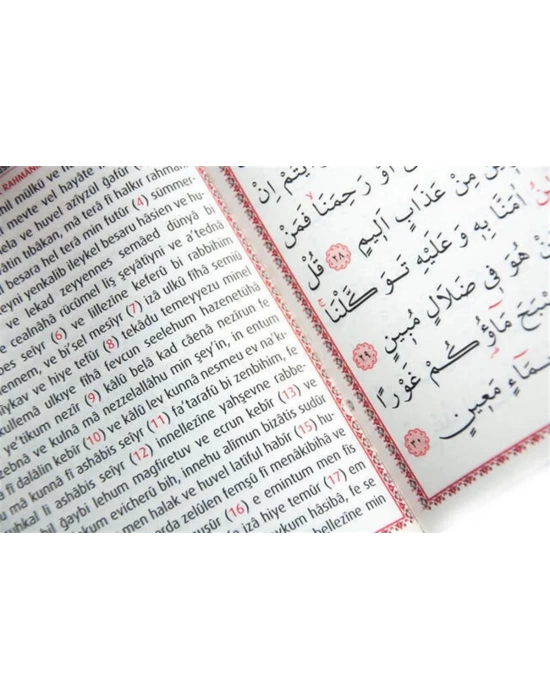 RAHMANİ
mülkü ve
mevte vel hayâte
ve huvel azîyzül ğafûr
tıbâkan, mâ terâ fî halkır rahman
besara hel terâ min futûr (4) sümmer-
yenkalib ileykel besaru hâsien ve hu-
ve lekad zeyyennes semâed dünyâ bi
ve cealnâhâ rucûmel liş şeyâtîyni ve a'tednâ
seîyr (6) ve lillezîne keferû bi rabbihim
ve bi'sel mesîyr (7) izâ ulkû fîhâ semiû
ve hiye tefûr (8) tekâdu temeyyezu minel
ulkıye fîhâ fevcun seelehum hazenetühâ
e'tikum nezîr (9) kâlû belâ kad câenâ nezîrun fe
zebnâ ve kulnâ mâ nezzelallâhu min şey'in, in entum
fî dalâlin kebîr (10) ve kâlû lev kunnâ nesmeu ev na'k-
mâ kunnâ fî ashâbis seîyr (11) fa'tarafû bi zenbihim, fe
li ashâbis seîyr (12) innellezîne yahşevne rabbe-
bil ğaybi lehum mağfiretuv ve ecrun kebîr (13) ve
evicherû bih, innehu alîmun bizâtis sudûr
men halak ve huvel latîful habîr (15) hu-
zelûlen femşû fî menâkibihâ ve
(16) e emintum men fis
izâ hiye temûr (17) em
hâsibâ, fe se
bellezîne min
اِنْ
اَوْ رَحِمَنَا فَمَنْ
مِنْ عَذَابٍ اَلِيمٍ ﴿٢٨﴾ قُلْ
اٰمَنَّا بِهٖ وَعَلَيْهِ تَوَكَّلْنَا
هُوَ فِي ضَلَالٍ مُبِينٍ ﴿٢٩﴾
مَاؤُكُمْ غَوْرًا
مَعِينٍ ﴿٣٠﴾